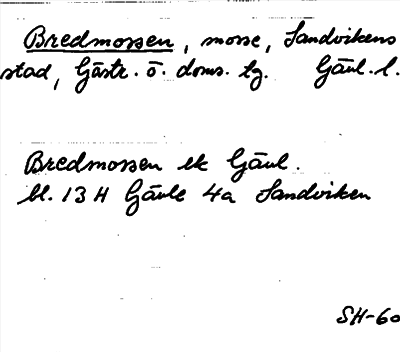 Bredmossen, mosse, Sandvikens
stad, Gästr. ö. doms. tg. Gävl. l.
Bredmossen ek Gävl.
bl. 13 H Gävle 4a Sandviken
SH-60